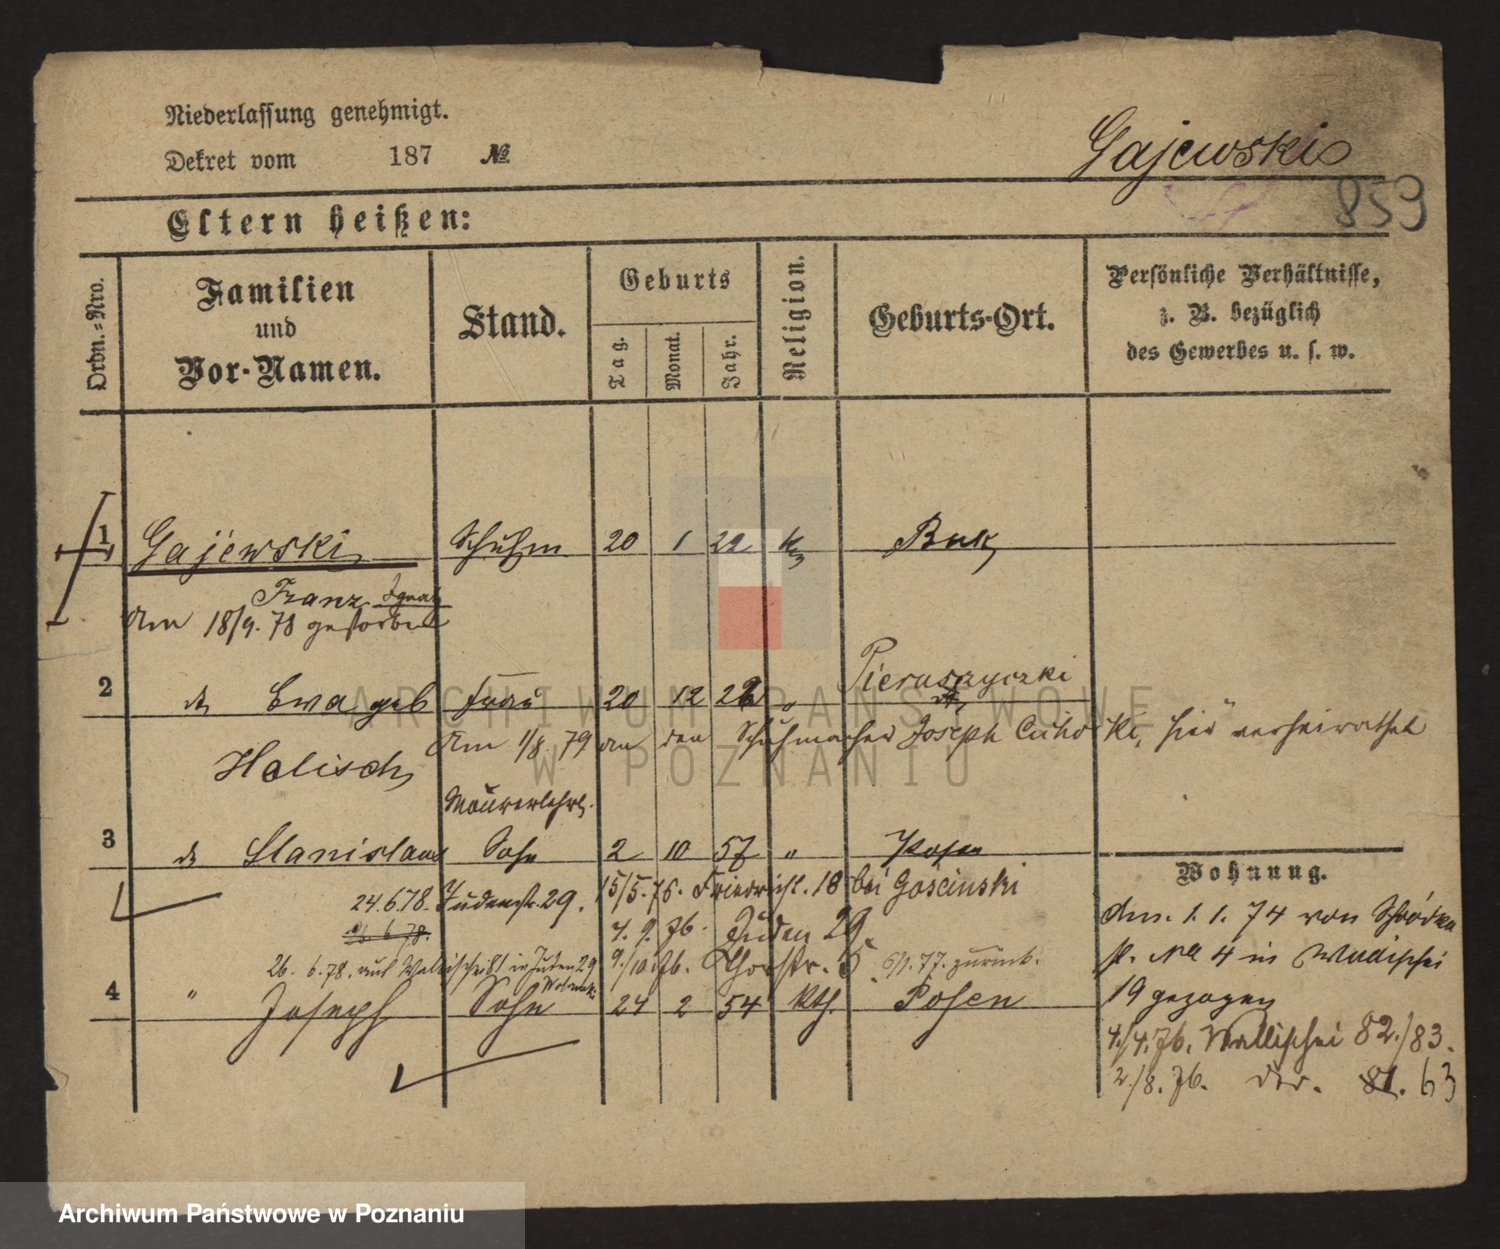 Niederlassung genehmigt.
Dekret vom 187 №
Gajewski
859
Eltern heißen:
Ordn.-Nro.
Familien und Vor-Namen.
Stand.
Geburts
Tag.
Monat.
Jahr.
Religion.
Geburts-Ort.
Persönliche Verhältnisse,
z. B. bezüglich
des Gewerbes u. s. w.
1 Gajewski Schuhm 20 1 22 k Buk
Franz Ignatz
Am 18/9. 78 gestorben
2 Ewa geb Frau 20 12 22 " Pieruszyczki
Am 1/8. 79 an den Schuhmacher Joseph hier verheirathet
Halisch
Maurerlehrl.
3 Stanislaus Sohn 2 10 57 " Posen
Wohnung.
24.6.78. Judenstr. 29. 15/5. 76. Friedrichst. 18 bei Goscinski
Am. 1. 1. 74 von Schrodka
26. 6. 78.
7. 9. 76. Juden 29.
26. 6. 78. auf Wallischei in Juden 29
9./10. 76. Thorstr. 5. 77. zurück.
№ 4 in Wallischei
4 " Joseph Sohn 24 2 54 kth. Posen
19 gezogen
4./4. 76. Wallischei 82./83.
2./8. 76. 81. 63
ARCHIWUM PAŃSTWOWE
W POZNANIU
Archiwum Państwowe w Poznaniu